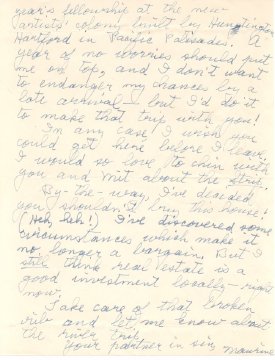 year's fellowship at the new
artists' colony built by Huntington
Hartford in Pacific Palisades. A
year of no worries should put
me on top, and I don't want
to endanger my chances by a
late arrival - but I'd do it
to make that trip with you!
In any case I wish you
could get here before I leave,
I would so love to chin with
you and not about the strip
By-the-way, I've decided
you shouldn't buy this house!
(Heh, heh!) I've discovered some
circumstances which make it
no longer a bargain. But I
still think real estate is a
good investment locally - right
now.
Take care of that broken
rib and let me know about
the river trip.
Your partner in sin, Maurine